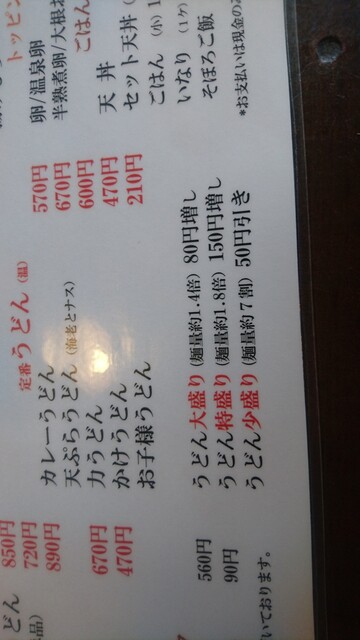 どん
850円
720円
890円
670円
470円
560円
90円
いております。
定番うどん (温)
カレーうどん 570円
天ぷらうどん (海老とナス) 670円
力うどん 600円
かけうどん 470円
お子様うどん 210円
うどん大盛り (麺量約1.4倍) 80円増し
うどん特盛り (麺量約1.8倍) 150円増し
うどん少盛り (麺量約7割) 50円引き
トッピン
卵/温泉卵
半熟煮卵/大根お
ごはん
天丼
セット天丼 (
ごはん (小) 1
いなり (1ケ)
そぼろご飯
*お支払いは現金の